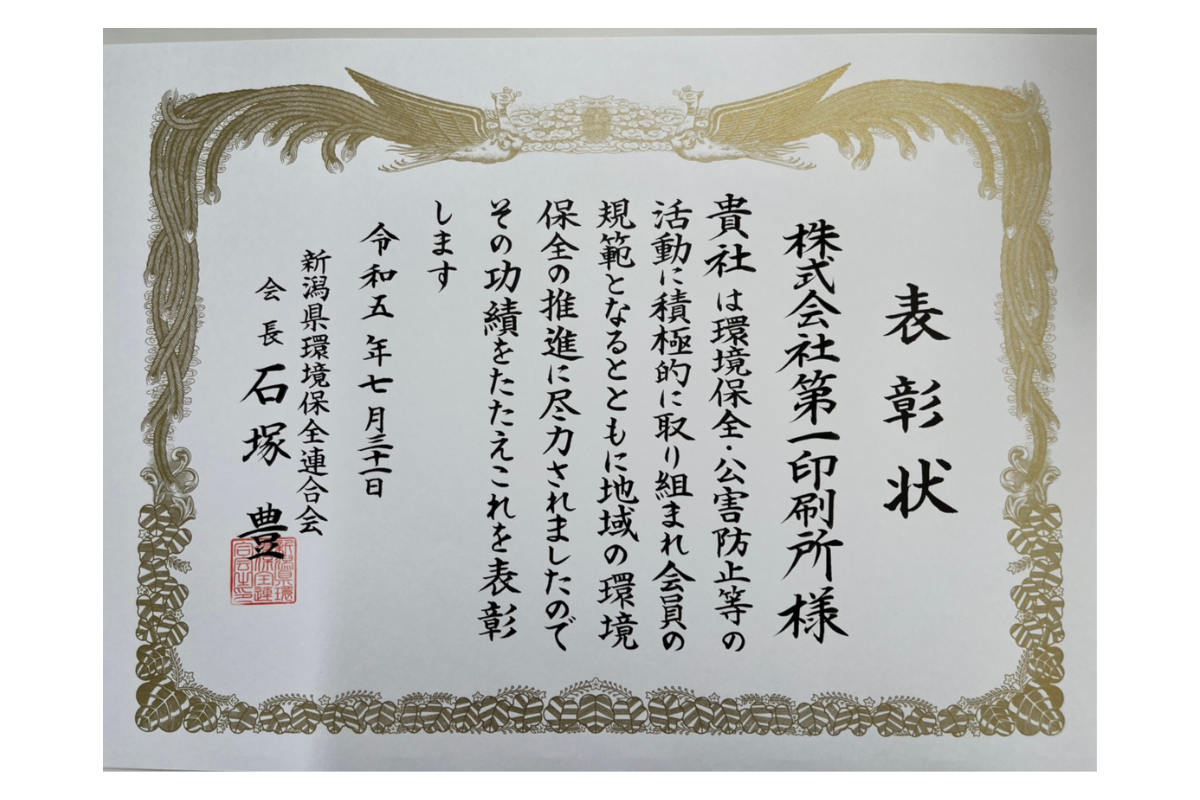 表彰状
株式会社第一印刷所様
貴社は環境保全・公害防止等の
活動に積極的に取り組まれ会員の
規範となるとともに地域の環境
保全の推進に尽力されましたので
その功績をたたえこれを表彰
します
令和五年七月三十一日
新潟県環境保全連合会
会長 石塚 豊